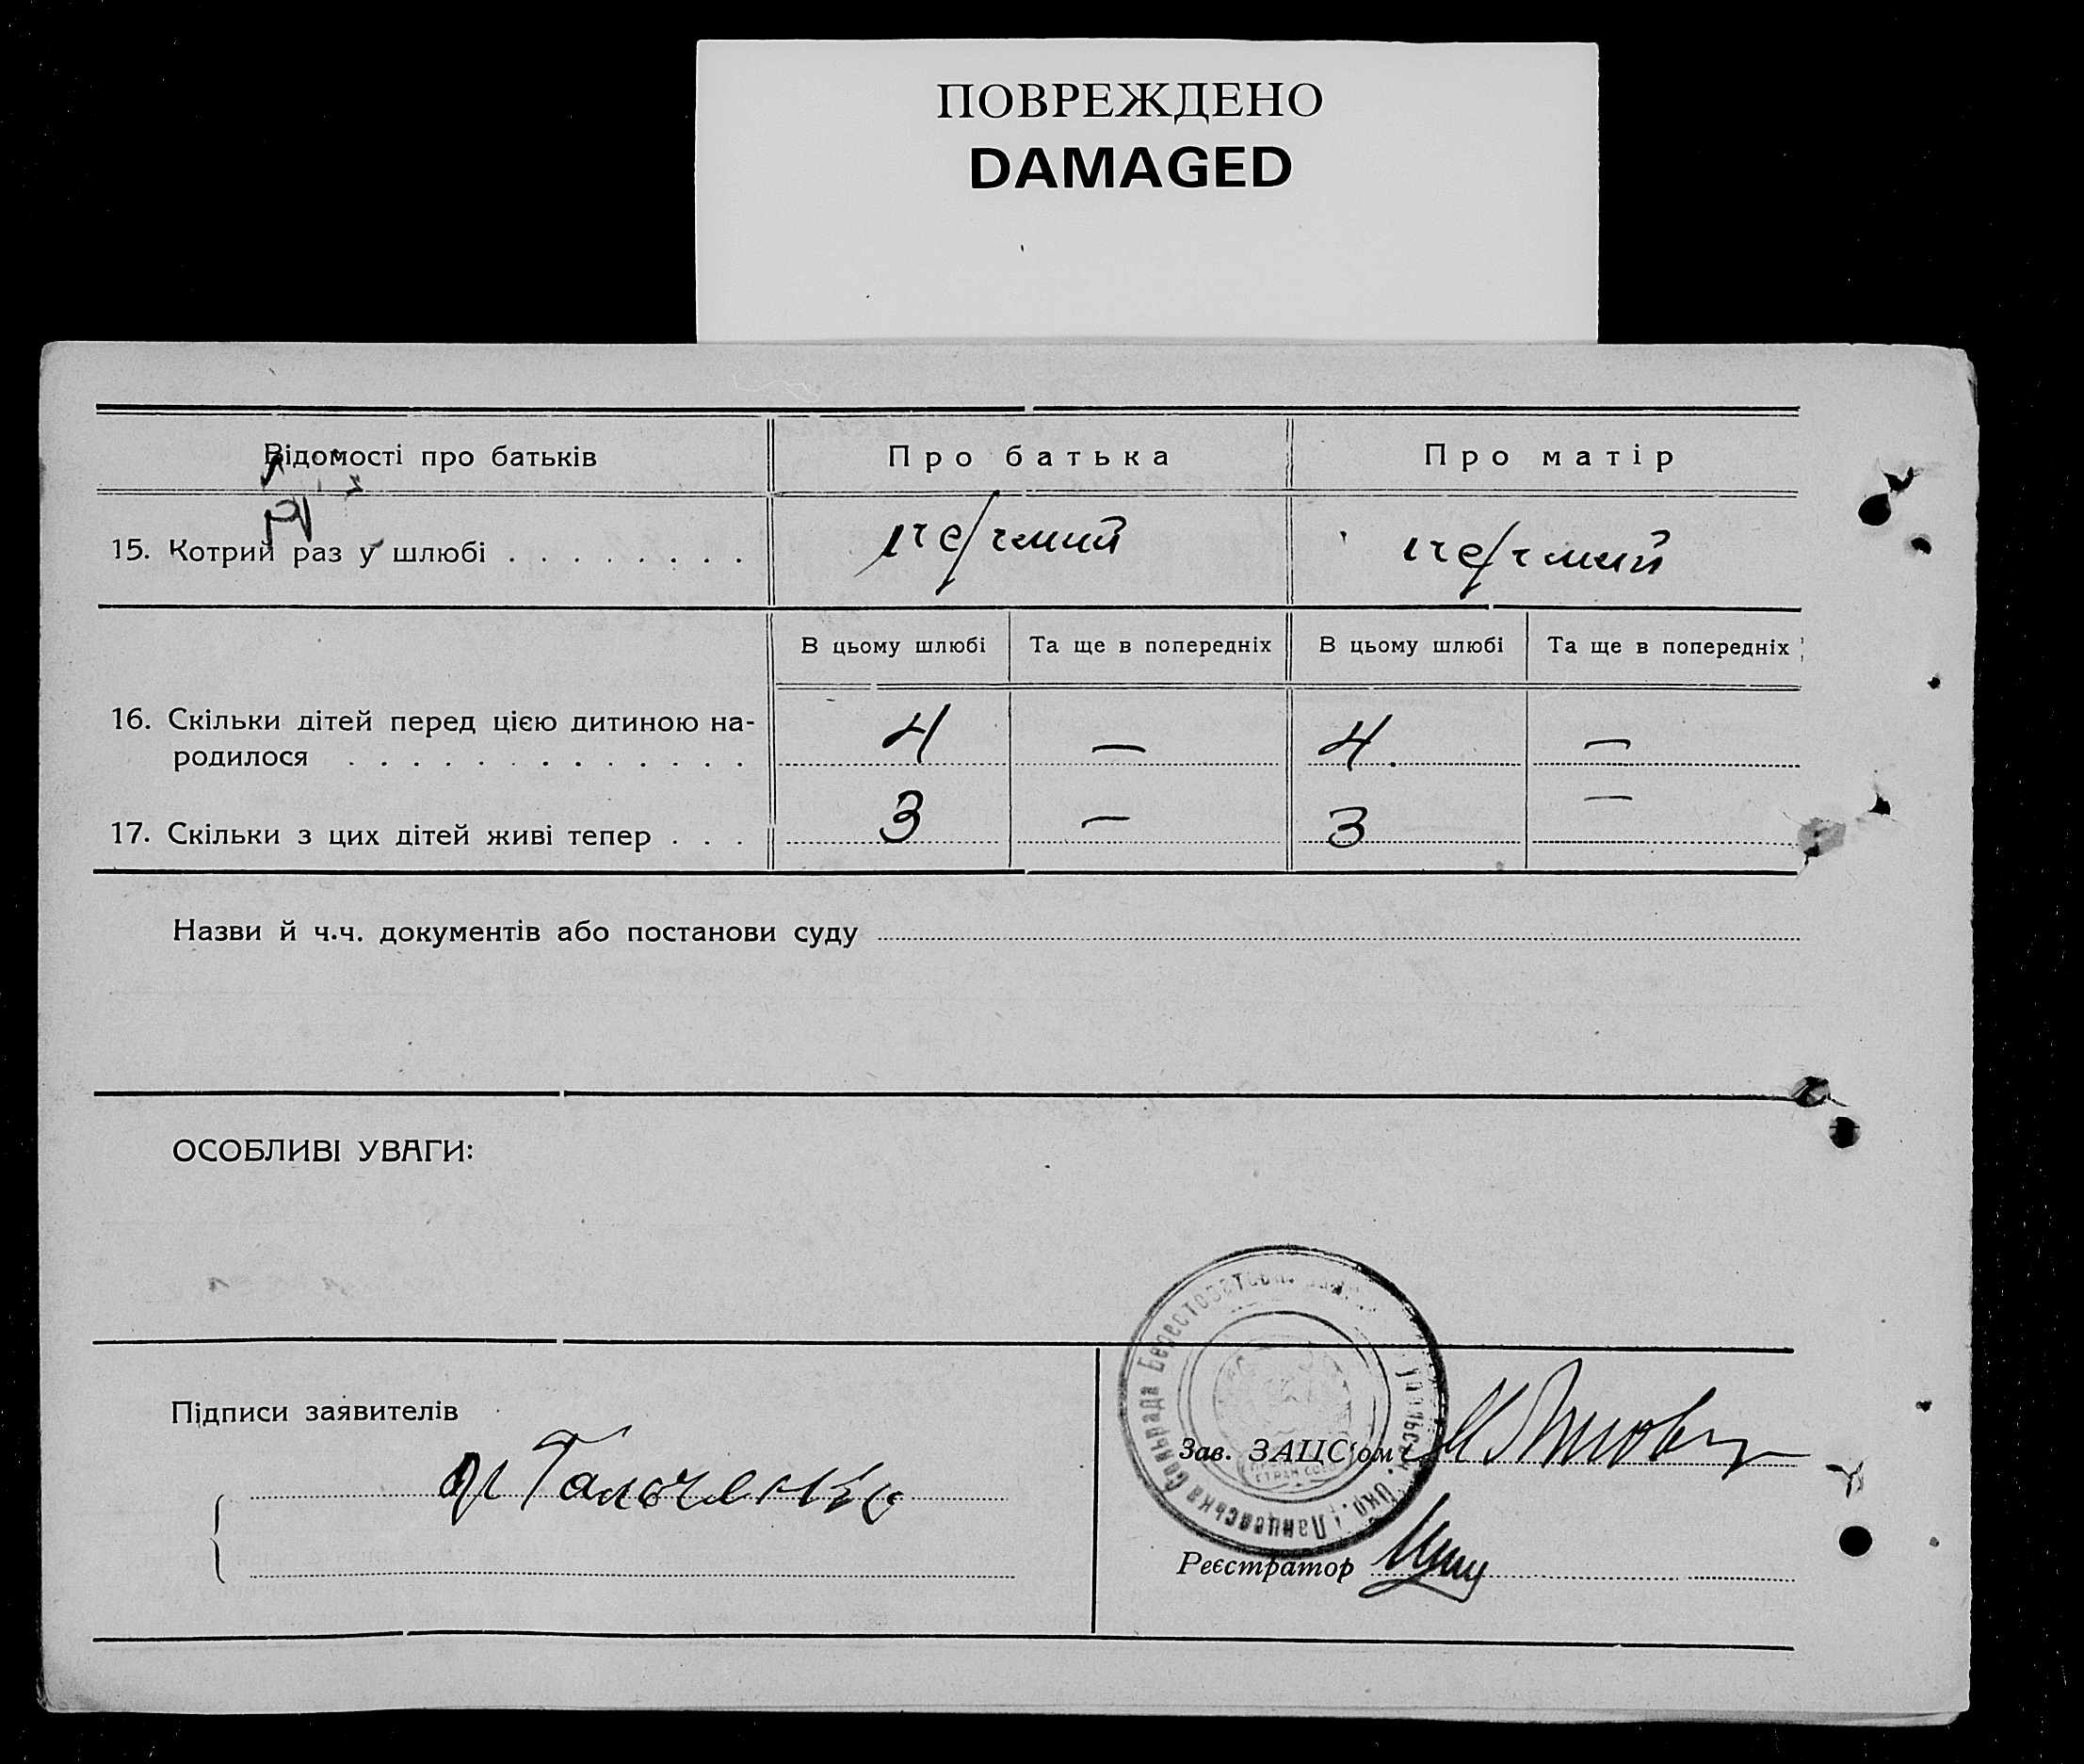 ПОВРЕЖДЕНО
DAMAGED
Відомості про батьків
Про батька
Про матір
15. Котрий раз у шлюбі . . . . . . . .
перший
перший
В цьому шлюбі
Та ще в попередніх
В цьому шлюбі
Та ще в попередніх
16. Скільки дітей перед цією дитиною на-
родилося . . . . . . . . . . . . .
4
—
4.
—
17. Скільки з цих дітей живі тепер . . .
3
—
3
—
Назви й ч.ч. документів або постанови суду
ОСОБЛИВІ УВАГИ:
Підписи заявителів
Зав. ЗАЦС'ом
Реєстратор
Сільрада Берестоватськ
Окр.